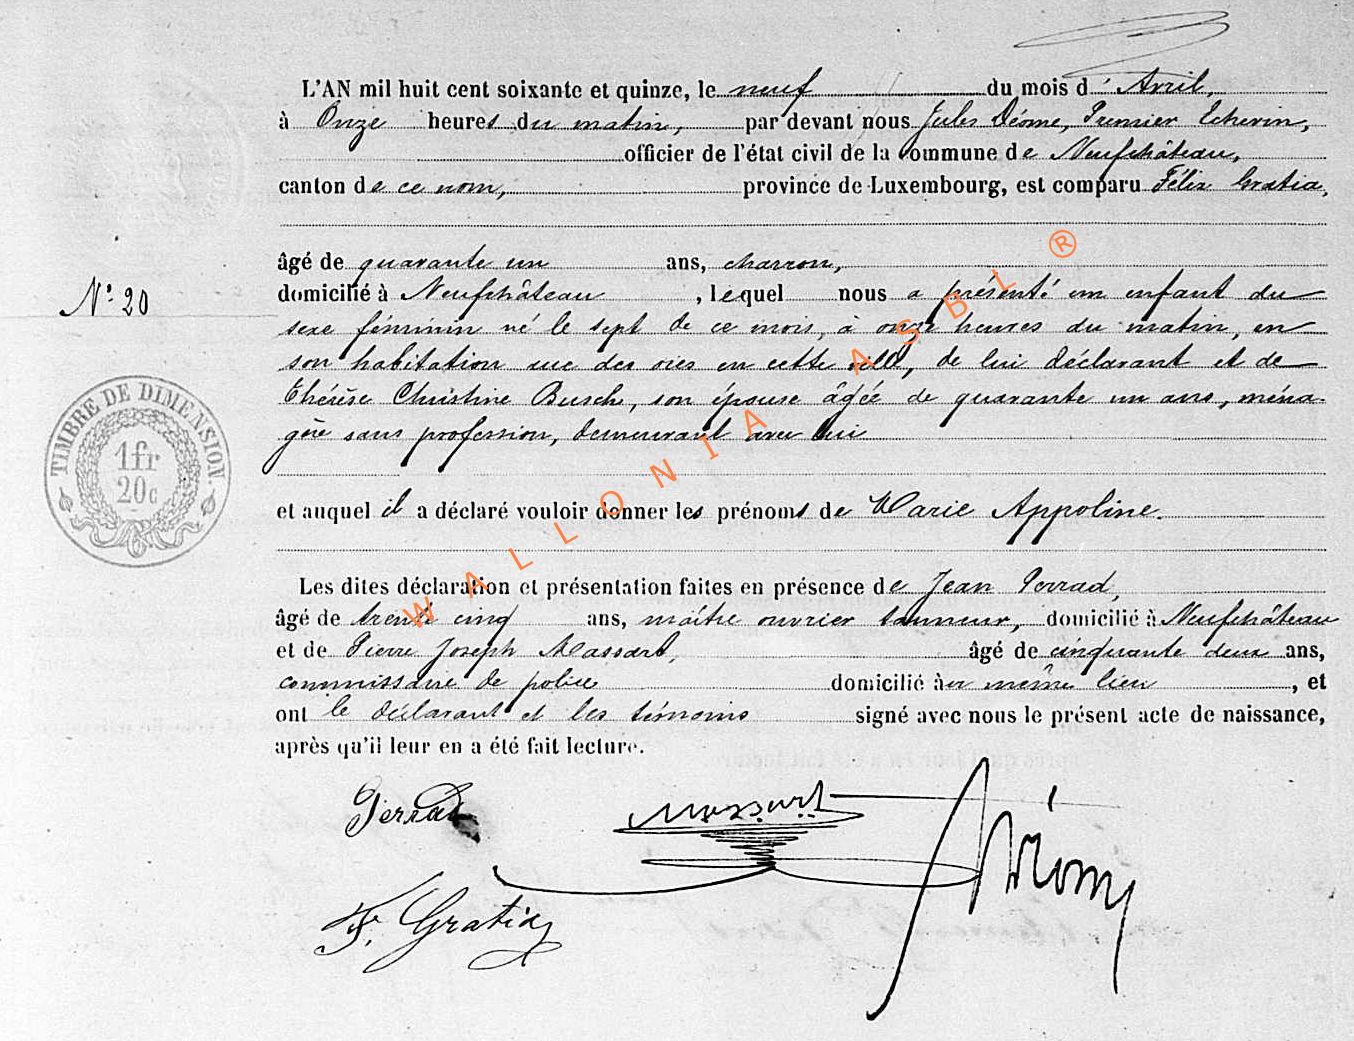 L'AN mil huit cent soixante et quinze, le neuf du mois d'Avril,
à Onze heures du matin, par devant nous Jules Déome, Premier Echevin,
officier de l'état civil de la commune de Neufchâteau,
canton de ce nom, province de Luxembourg, est comparu Félix Gratia,
âgé de quarante un ans, charron,
N° 20
domicilié à Neufchâteau, lequel nous a présenté un enfant du
sexe féminin né le sept de ce mois, à onze heures du matin, en
son habitation rue des oies en cette ville, de lui déclarant et de
Thérèse Christine Busch, son épouse âgée de quarante un ans, ména-
gère sans profession, demeurant avec lui
TIMBRE DE DIMENSION
1fr
20c
et auquel il a déclaré vouloir donner les prénoms de Marie Appoline.
Les dites déclaration et présentation faites en présence de Jean Perrad,
âgé de trente cinq ans, maître ouvrier tanneur, domicilié à Neufchâteau
et de Pierre Joseph Massart, âgé de cinquante deux ans,
commissaire de police domicilié au même lieu, et
ont le déclarant et les témoins signé avec nous le présent acte de naissance,
après qu'il leur en a été fait lecture.
Perrad Massart Déom
F. Gratia
WALLONIA ASBL ®